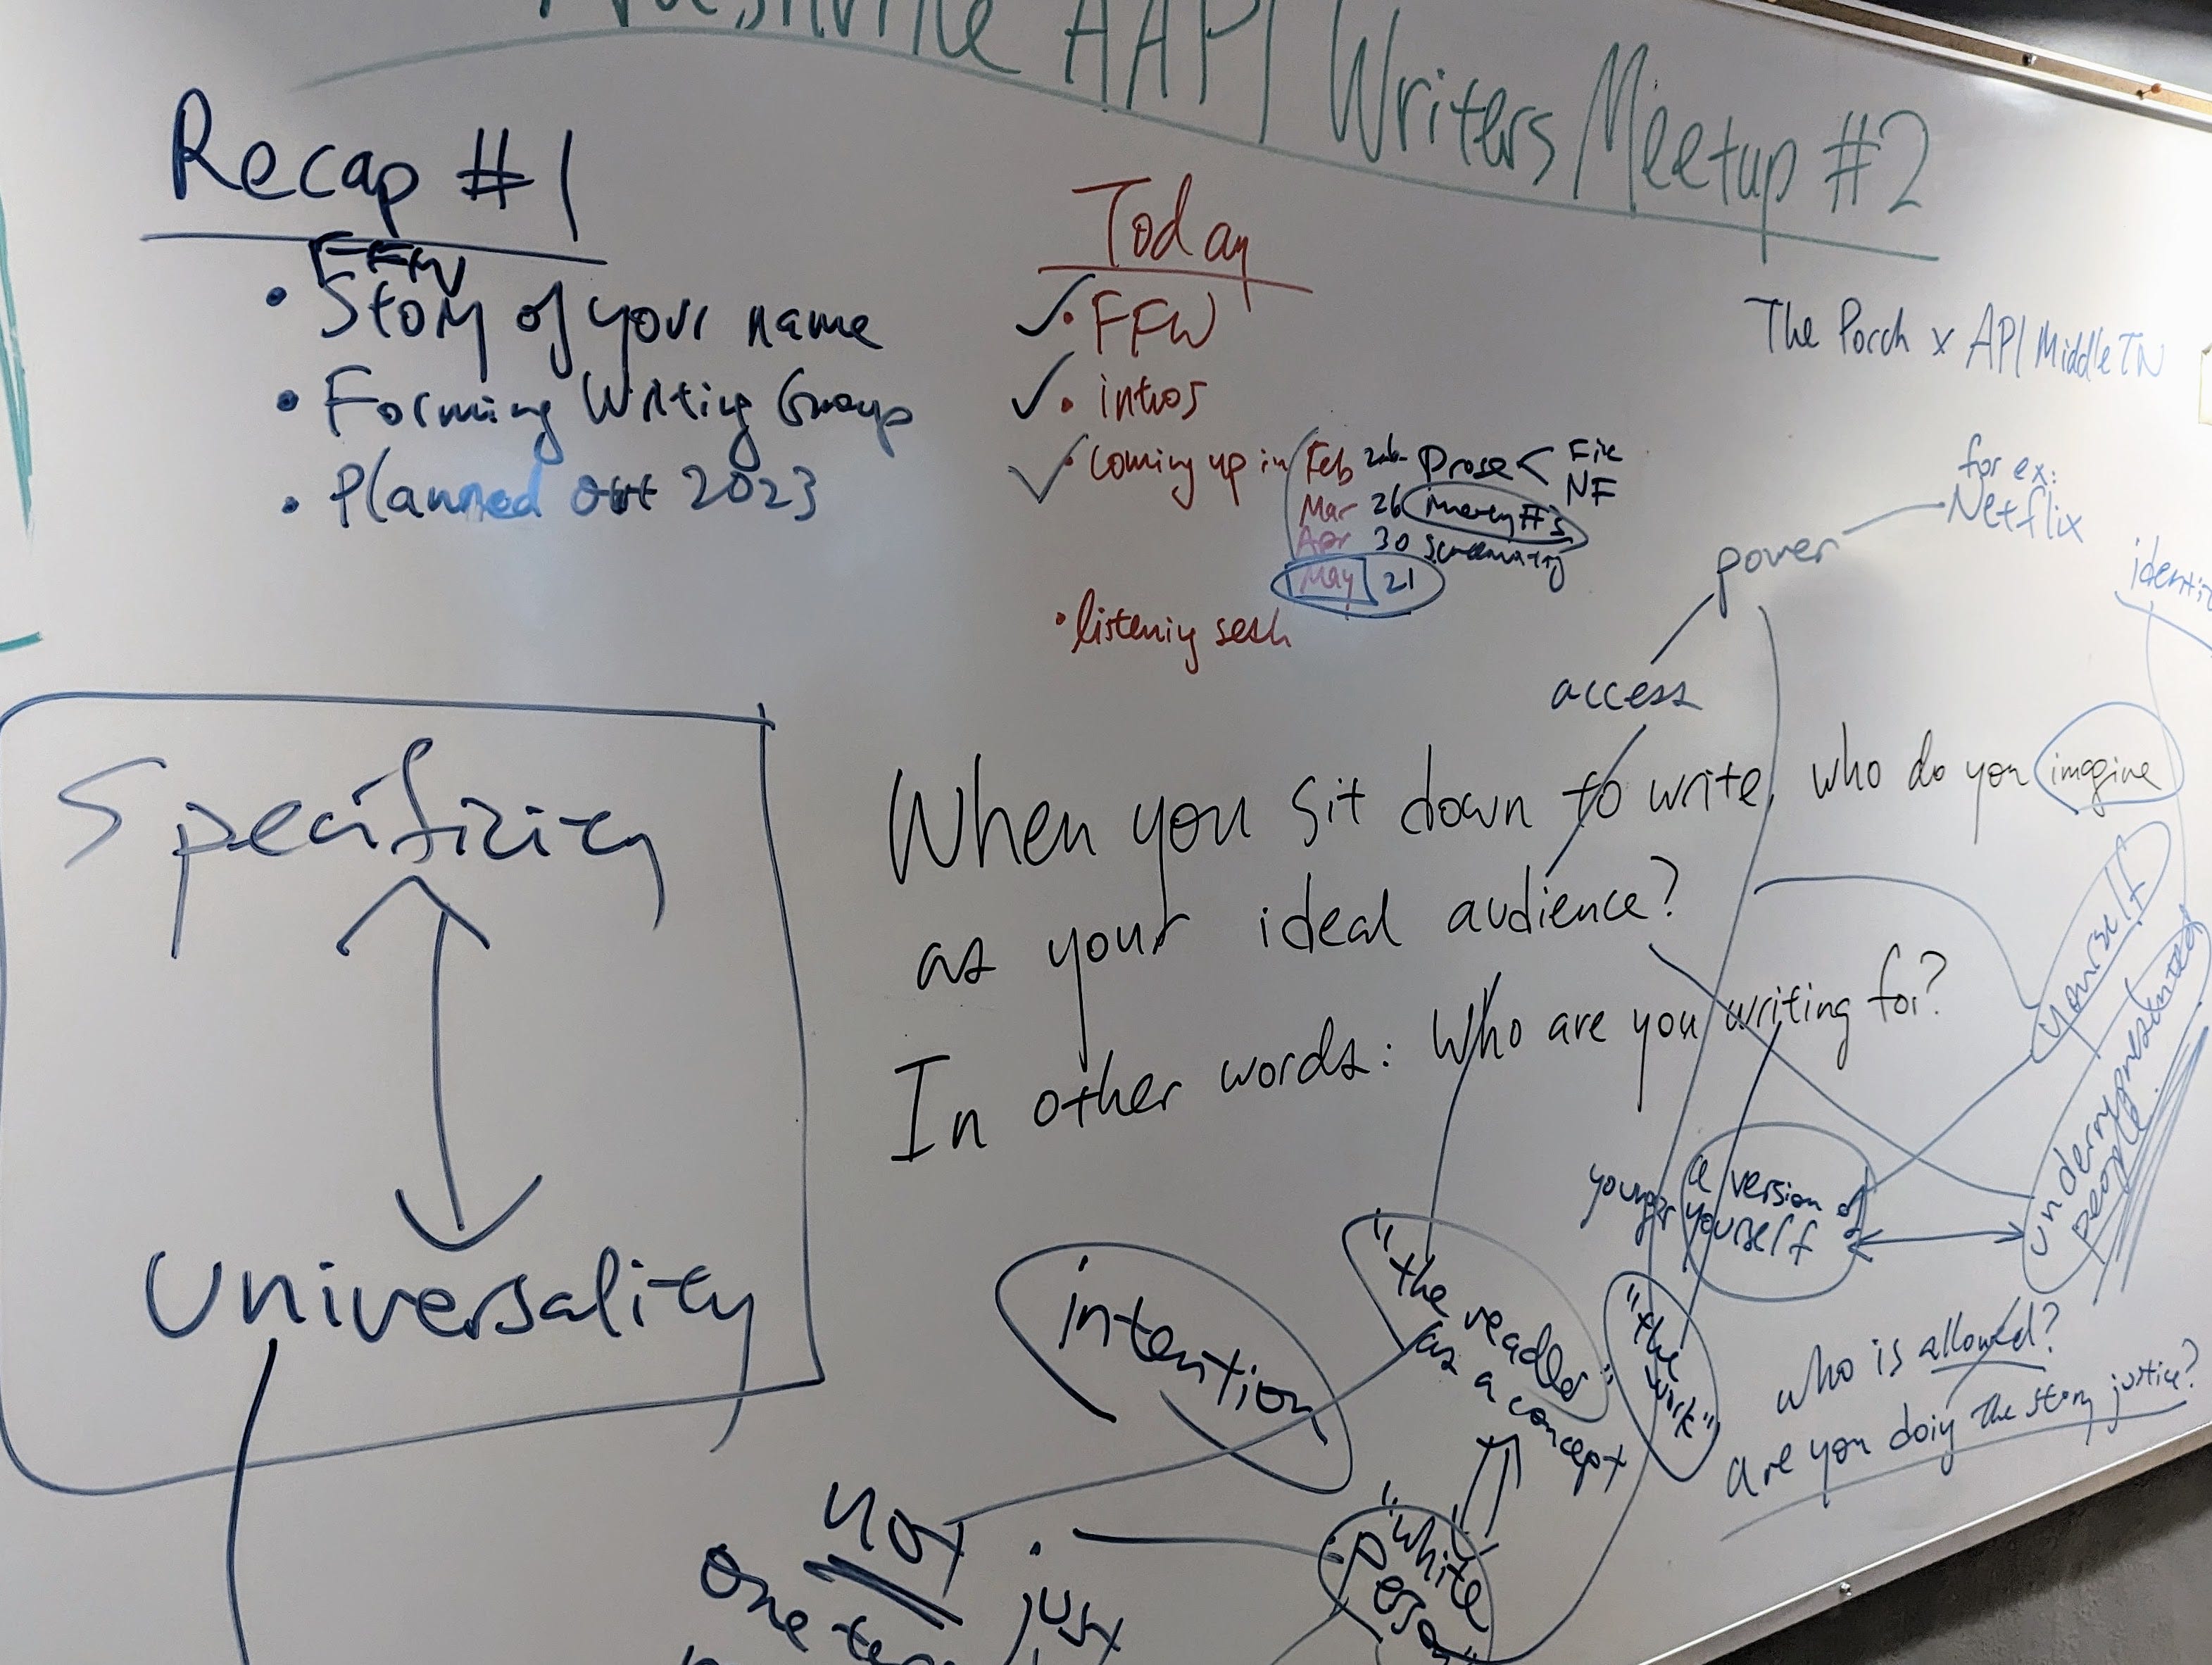 AAPI Writers Meetup #2
Recap #1
FFW
• Story of your name
• Forming Writing Group
• Planned out 2023
Today
• FFW
• intros
• coming up in Feb 26 Prose < Fic
NF
Mar 26
Apr 30
May 21
• listening sesh
The Porch x API Middle TN
for ex:
Netflix
power
access
Specificity
Universality
When you sit down to write, who do you imagine
as your ideal audience?
In other words: Who are you writing for?
yourself
underrepresented
people
younger
a version of
yourself
intention
"the reader"
as a concept
"the work"
who is allowed?
are you doing the story justice?
"white
person"
not
just
one